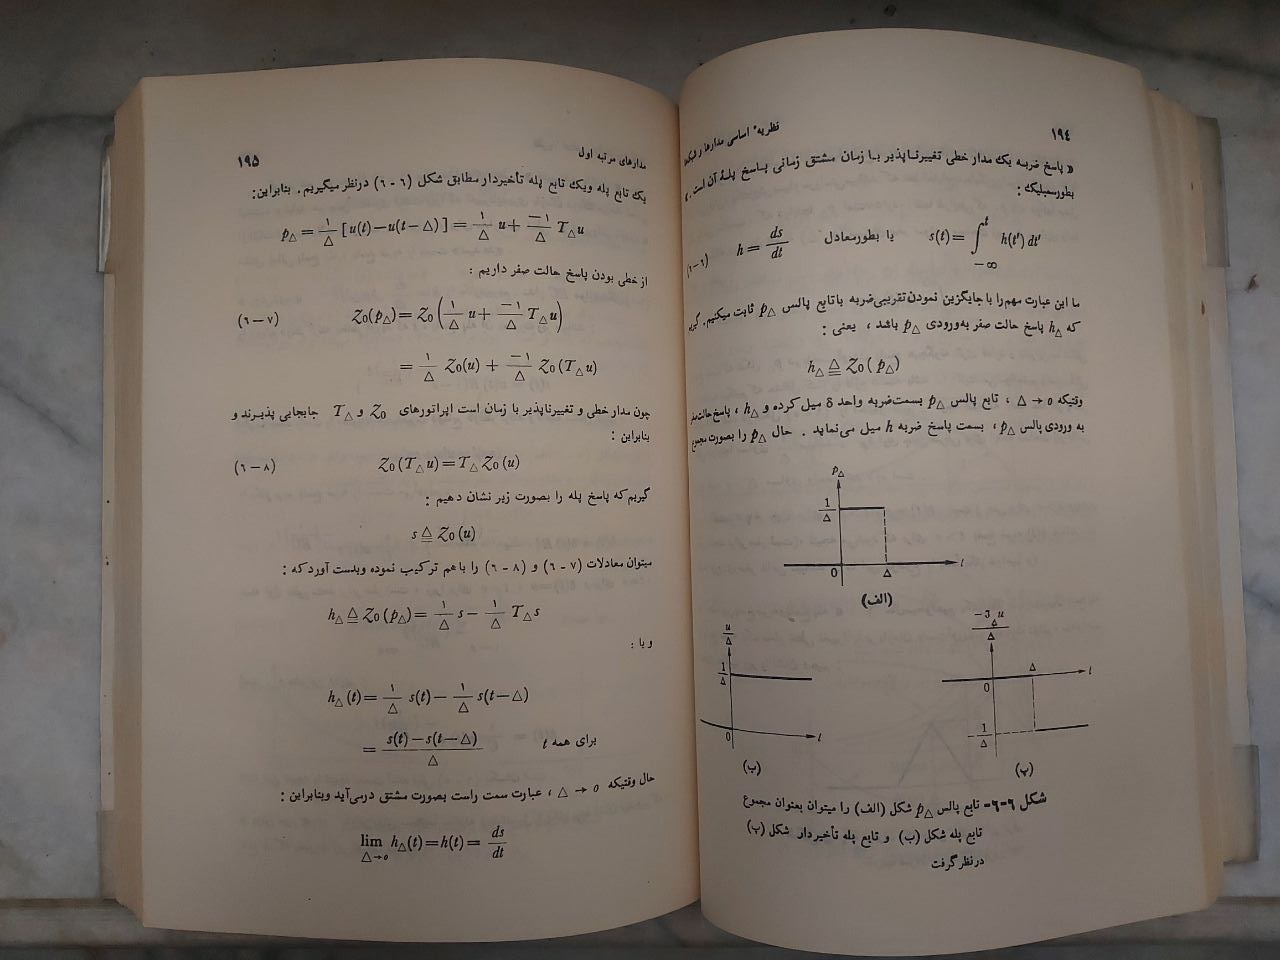 ۱۹۴
نظریه اساسی مدارها و شبکه‌ها
« پاسخ ضربه یک مدار خطی تغییرناپذیر با زمان مشتق زمانی پاسخ پلهٔ آن است. »
بطورسمبلیک :
(۶-۶) h = ds/dt یا بطورمعادل s(t) = ∫_{-∞}^{t} h(t') dt'
ما این عبارت مهم را با جایگزین نمودن تقریبی ضربه با تابع پالس p△ ثابت میکنیم. گیریم
که h△ پاسخ حالت صفر به ورودی p△ باشد ، یعنی :
h△ ≜ Z₀(p△)
وقتیکه △ → ۰ ، تابع پالس p△ بسمت ضربه واحد δ میل کرده و h△ ، پاسخ حالت صفر
به ورودی پالس p△ ، بسمت پاسخ ضربه h میل می‌نماید . حال p△ را بصورت مجموع
p△
1/△
0 △ t
(الف)
u/△
1/△
0 t
(ب)
△ t
0
1/△
(پ)
شکل ۶-۶- تابع پالس p△ شکل (الف) را میتوان بعنوان مجموع
تابع پله شکل (ب) و تابع پله تأخیردار شکل (پ)
درنظر گرفت
مدارهای مرتبه اول
۱۹۵
یک تابع پله و یک تابع پله تأخیردار مطابق شکل (۶-۶) درنظر میگیریم . بنابراین:
p△ = ۱/△ [u(t)−u(t−△)] = ۱/△ u + −۱/△ T△u
از خطی بودن پاسخ حالت صفر داریم :
(۶-۷) Z₀(p△) = Z₀(۱/△ u + −۱/△ T△u)
= ۱/△ Z₀(u) + −۱/△ Z₀(T△u)
چون مدار خطی و تغییرناپذیر با زمان است اپراتورهای Z₀ و T△ جابجایی پذیرند و
بنابراین :
(۶-۸) Z₀(T△u) = T△Z₀(u)
گیریم که پاسخ پله را بصورت زیر نشان دهیم :
s ≜ Z₀(u)
میتوان معادلات (۶-۷) و (۶-۸) را باهم ترکیب نموده وبدست آورد که :
h△ ≜ Z₀(p△) = ۱/△ s − ۱/△ T△s
و یا :
h△(t) = ۱/△ s(t) − ۱/△ s(t−△)
= s(t)−s(t−△)/△ برای همه t
حال وقتیکه △ → ۰ ، عبارت سمت راست بصورت مشتق درمی‌آید وبنابراین :
lim △→۰ h△(t) = h(t) = ds/dt